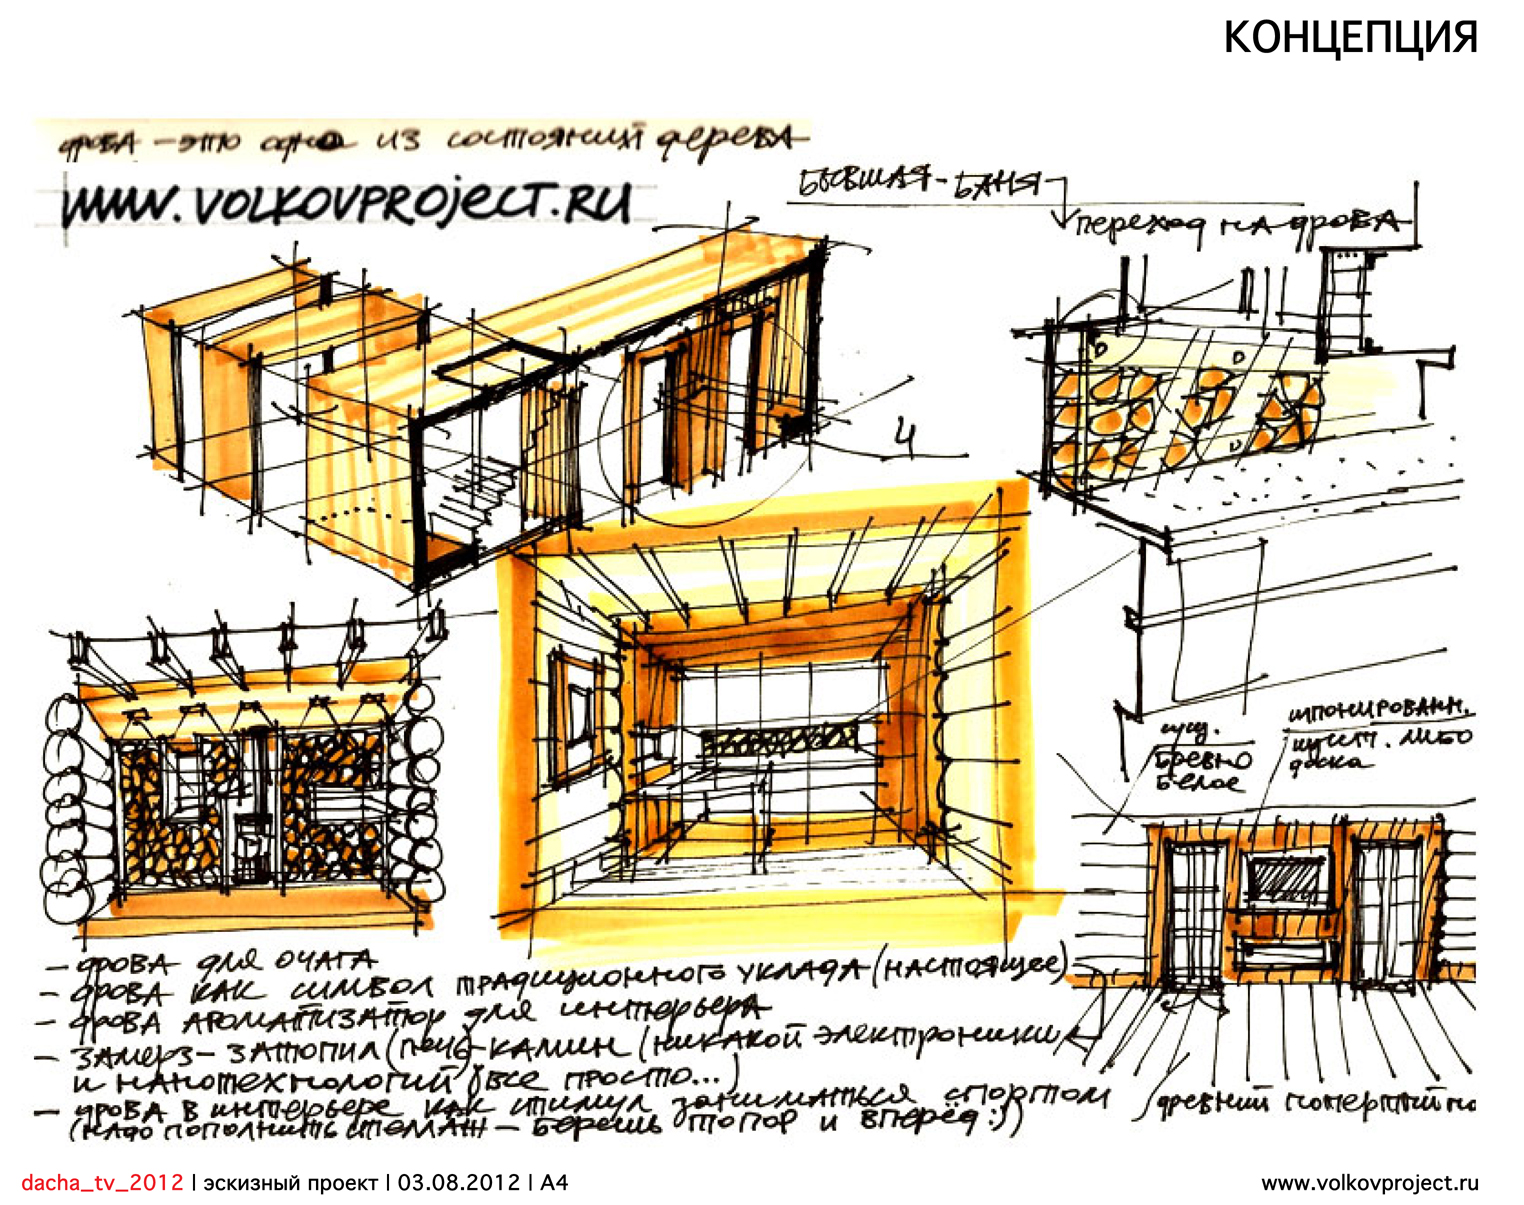 КОНЦЕПЦИЯ
дрова – это одно из состояний дерева
WWW.VOLKOVPROJECT.RU
БЫВШАЯ - БАНЯ
переход на дрова
4
шпонированн.
либо
доска
бревно
белое
– дрова для очага
– дрова как символ традиционного уклада (настоящее)
– дрова ароматизатор для интерьера
– замерз – затопил (печь)-камин (никакой электроники
и нанотехнологий (все просто...)
– дрова в интерьере как стимул заниматься спортом
(надо пополнить стеллаж – берешь топор и вперед :))
древний
dacha_tv_2012 | эскизный проект | 03.08.2012 | A4
www.volkovproject.ru